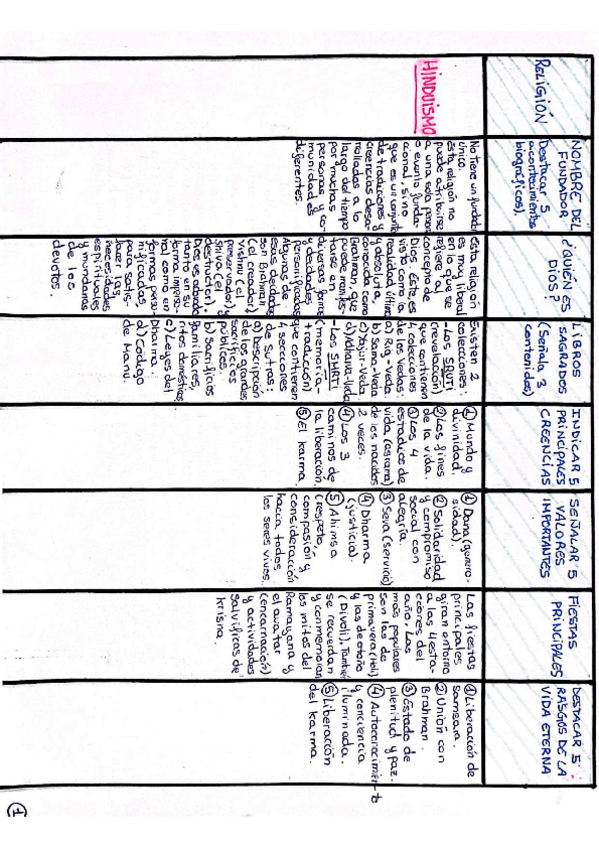 RELIGIÓN
HINDUISMO
NOMBRE DEL
FUNDADOR
Destacar 5
acontecimientos
biográficos).
No tiene un fundador
único.
Esta religión no
puede atribuirse
a una sola persona
o evento funda-
cional, sino
que es un conjunto
de tradiciones y
creencias desa-
rrolladas a lo
largo del tiempo
por muchas
personas y co-
munidades
diferentes.
¿QUIÉN ES
DIOS?
Esta religión
es muy liberal
en lo que se
refiere al
concepto de
Dios. Éste, es
visto como la
realidad última
y absoluta,
conocida como
Brahman, que
puede manifes-
tarse en
diversas formas
y deidades
personificadas.
Algunas de
esas deidades
son Brahman
(el creador),
vishnu (el
preservador) y
Shiva (el
destructor).
Dios, es adorado
tanto en su
forma imperso-
nal como en
formas perso-
nificadas
para satis-
facer las
necesidades
mundanas
y espirituales
de los
devotos.
LIBROS
SAGRADOS
(Señala 3
contenidos)
Existen 2
colecciones:
-Los SRUTI
(revelación)
que contienen
4 colecciones
de los Vedas:
a) Rig-Veda.
b) Sama-Veda
c) Yajur-Veda
d) Athava-Veda
-Los SMRTI
(memoria-
traducción)
que contienen
4 secciones
de sutras:
a) Descripción
de los grandes
sacrificios
públicos.
b) Sacrificios
familiares,
ritos domésticos
c) Leyes del
Dharma.
d) Código
de Manu.
INDICAR 5
PRINCIPALES
CREENCIAS
① Mundo y
divinidad.
② Los fines
de la vida.
③ Los 4
estadios de
vida (asrama)
de los nacidos
2 veces.
④ Los 3
caminos de
la liberación.
⑤ El karma.
SEÑALAR 5
VALORES
IMPORTANTES
① Dana (genero-
sidad).
② Solidaridad
y compromiso
social con
alegría.
③ Seva (servicio)
④ Dharma
(justicia).
⑤ Ahimsa
(respeto,
compasión y
consideración
hacia todos
los seres vivos.
FIESTAS
PRINCIPALES
Las fiestas
principales
giran entorno
a las 4 esta-
ciones del
año. Las
más populares
son las de
primavera (Holi)
y las de otoño
(Divoli). También
se recuerdan
y conmemoran
los mitos del
Ramayana y
el avatar
(encarnación)
y actividades
salvíficas de
krisna.
DESTACAR 5
RASGOS DE LA
VIDA ETERNA
① Liberación de
samsara.
② Unión con
Brahman.
③ Estado de
plenitud y paz.
④ Autoconocimien-to
y conciencia
iluminada.
⑤ Liberación
del karma.